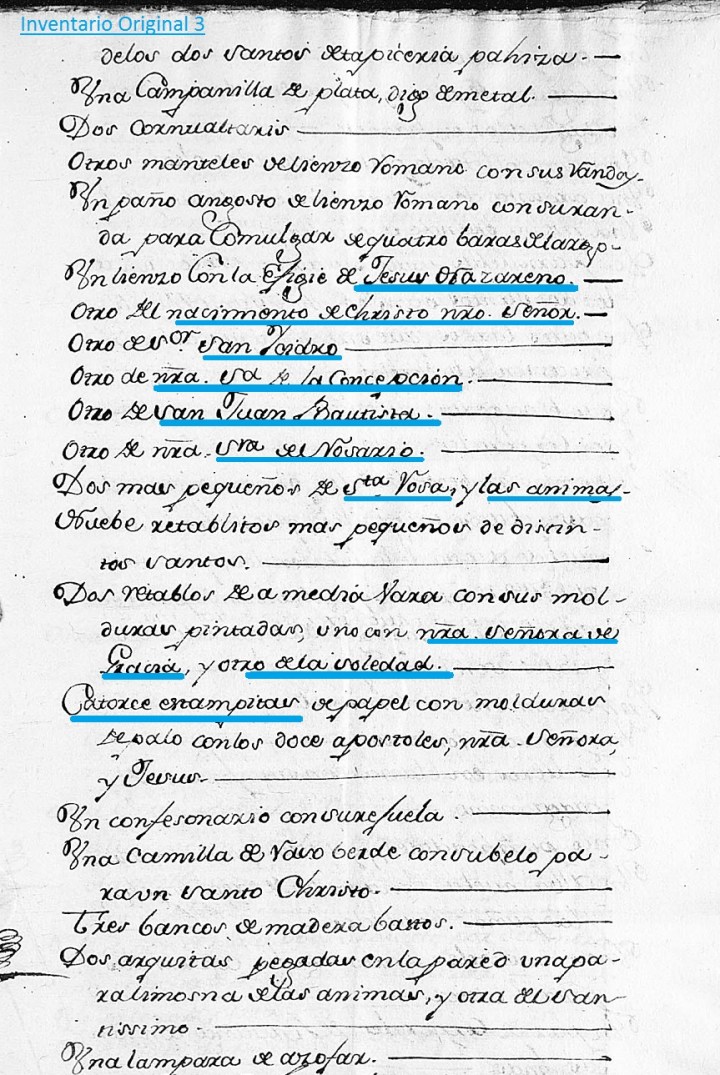 Inventario Original 3
delos dos santos de tapiceria pahiza.
Vna Campanilla de plata, digo de metal.
Dos Cornualtaris
Otros manteles de lienzo Romano con sus Vandas.
Vn paño angosto de lienzo Romano con su ran-
da para Comulgar de quatro baras de largo
Vn lienzo Con la Efigie de Jesus Nazareno.
Otro del nacimiento de Christo nro. Señor.
Otro de Sor. San Ysidro
Otro de nra. Sa de la Concepcion.
Otro de San Juan Bautista.
Otro de nra. Sra del Rosario.
Dos mas pequeños de Sta Rosa, y las animas.
Nuebe retablitos mas pequeños de distin-
tos santos.
Dos retablos de a media Vara con sus mol-
duras pintadas, uno con nra. Señora de
Gracia, y otro de la soledad.
Catorce estampitas de papel con molduras
de palo con los doce apostoles, nra. Señora,
y Jesus.
Vn confesonario con su rejuela.
Vna Camilla de Raso berde con su belo pa-
ra un santo Christo.
Tres bancos de madera bastos.
Dos arquitas pegadas en la pared una pa-
ra limosna de las animas, y otra del san-
tissimo.
Vna lampara de azofar.